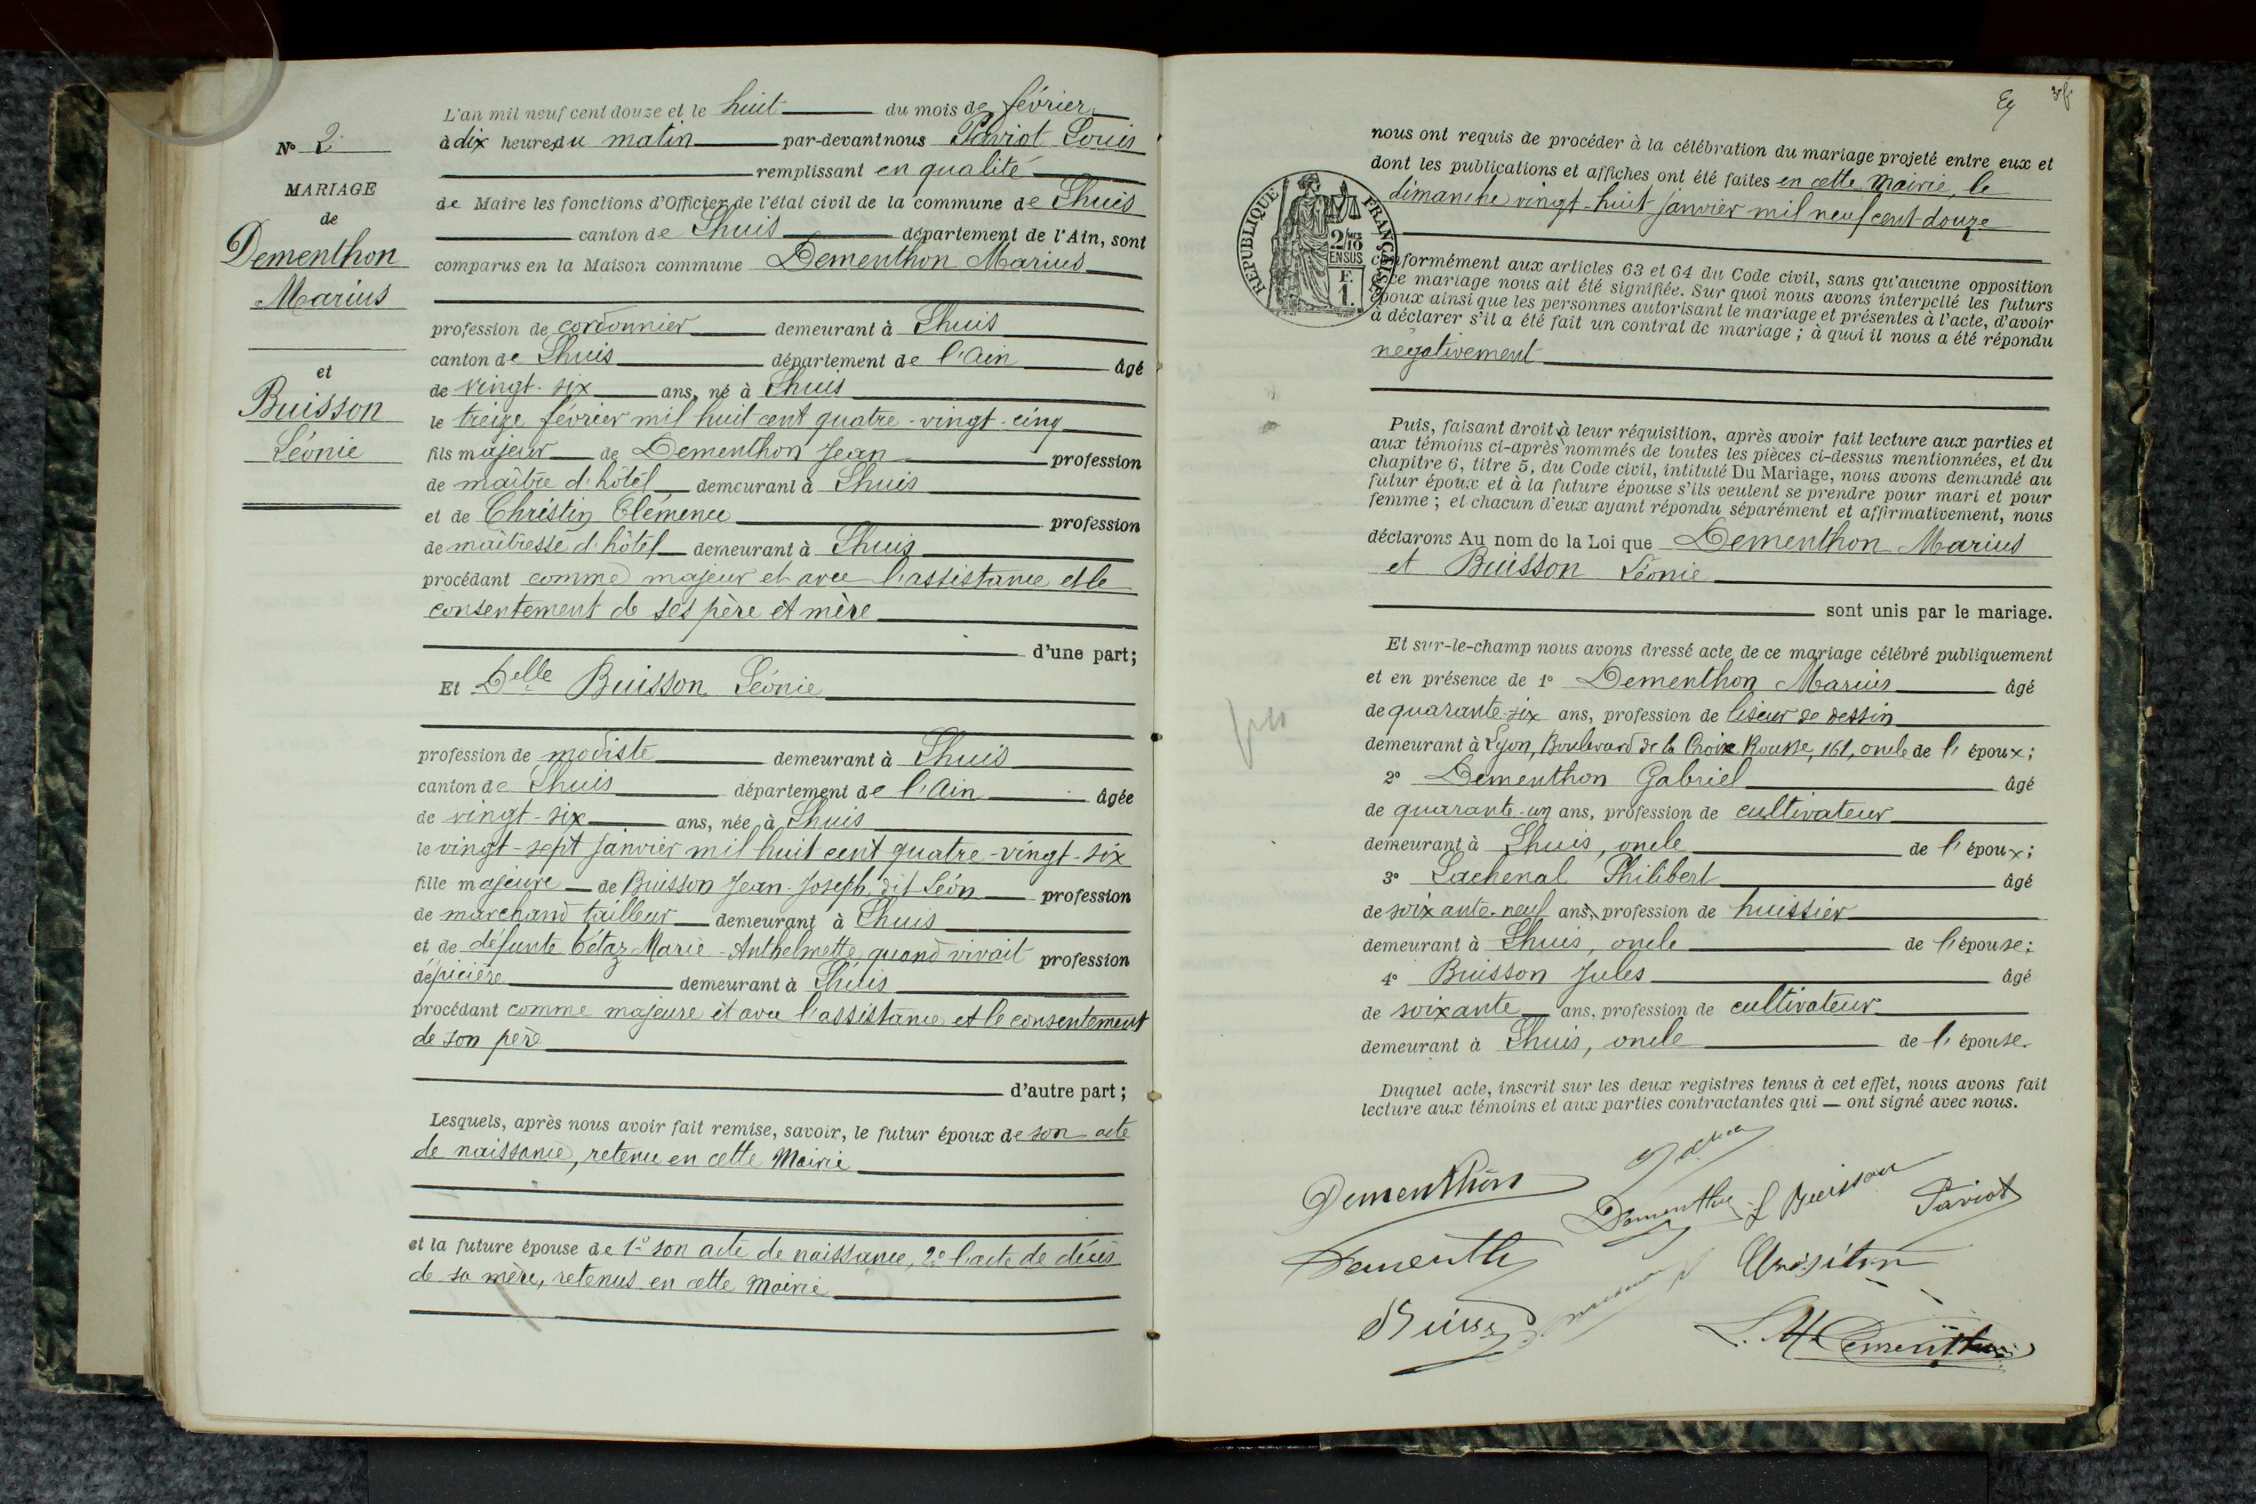 L'an mil neuf cent douze et le huit du mois de février
à dix heures du matin par-devant nous Paviot Louis
remplissant en qualité
de Maire les fonctions d'Officier de l'état civil de la commune de Lhuis
canton de Lhuis département de l'Ain, sont
comparus en la Maison commune Dementhon Marius
profession de cordonnier demeurant à Lhuis
canton de Lhuis département de l'Ain âgé
de vingt-six ans, né à Lhuis
le treize février mil huit cent quatre-vingt-cinq
fils majeur de Dementhon Jean profession
de maître d'hôtel demeurant à Lhuis
et de Christin Clémence profession
de maîtresse d'hôtel demeurant à Lhuis
procédant comme majeur et avec l'assistance et le
consentement de ses père et mère
d'une part;
Et Delle Buisson Léonie
profession de modiste demeurant à Lhuis
canton de Lhuis département de l'Ain âgée
de vingt-six ans, née à Lhuis
le vingt-sept janvier mil huit cent quatre-vingt-six
fille majeure de Buisson Jean-Joseph, dit Léon profession
de marchand tailleur demeurant à Lhuis
et de défunte Bétaz Marie-Anthelmette, quand vivait profession
d'épicière demeurant à Lhuis
procédant comme majeure et avec l'assistance et le consentement
de son père
d'autre part;
Lesquels, après nous avoir fait remise, savoir, le futur époux de son acte
de naissance, retenu en cette Mairie
et la future épouse de 1° son acte de naissance, 2° l'acte de décès
de sa mère, retenus en cette Mairie
N° 2
MARIAGE
de
Dementhon
Marius
et
Buisson
Léonie
nous ont requis de procéder à la célébration du mariage projeté entre eux et
dont les publications et affiches ont été faites en cette Mairie, le
dimanche vingt-huit janvier mil neuf cent douze
RÉPUBLIQUE FRANÇAISE
2/10
EN SUS
F.
1.
conformément aux articles 63 et 64 du Code civil, sans qu'aucune opposition
à ce mariage nous ait été signifiée. Sur quoi nous avons interpellé les futurs
époux ainsi que les personnes autorisant le mariage et présentes à l'acte, d'avoir
à déclarer s'il a été fait un contrat de mariage; à quoi il nous a été répondu
négativement
Puis, faisant droit à leur réquisition, après avoir fait lecture aux parties et
aux témoins ci-après nommés de toutes les pièces ci-dessus mentionnées, et du
chapitre 6, titre 5, du Code civil, intitulé Du Mariage, nous avons demandé au
futur époux et à la future épouse s'ils veulent se prendre pour mari et pour
femme; et chacun d'eux ayant répondu séparément et affirmativement, nous
déclarons Au nom de la Loi que Dementhon Marius
et Buisson Léonie
sont unis par le mariage.
Et sur-le-champ nous avons dressé acte de ce mariage célébré publiquement
et en présence de 1° Dementhon Marius âgé
de quarante-six ans, profession de liseur de dessin
demeurant à Lyon, Boulevard de la Croix Rousse, 161, oncle de l'époux;
2° Dementhon Gabriel âgé
de quarante-un ans, profession de cultivateur
demeurant à Lhuis, oncle de l'époux;
3° Lachenal Philibert âgé
de soixante-neuf ans, profession de huissier
demeurant à Lhuis, oncle de l'épouse;
4° Buisson Jules âgé
de soixante ans, profession de cultivateur
demeurant à Lhuis, oncle de l'épouse.
Duquel acte, inscrit sur les deux registres tenus à cet effet, nous avons fait
lecture aux témoins et aux parties contractantes qui — ont signé avec nous.
Dementhon
Dementhon L Buisson Paviot